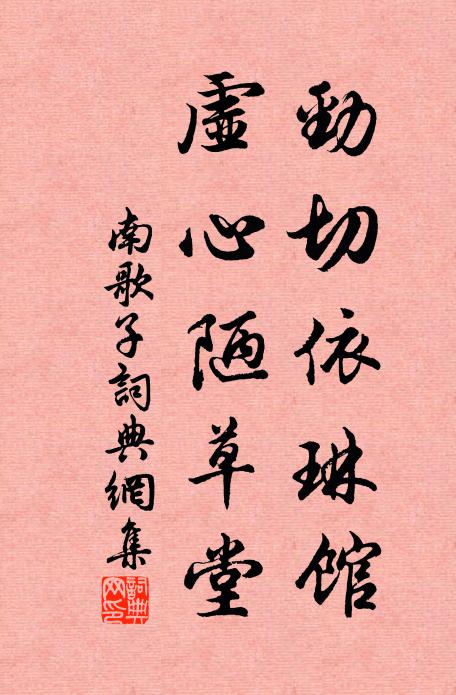 勁切依琳館
虛心陋草堂
南歌子詞典網集
詞典网印